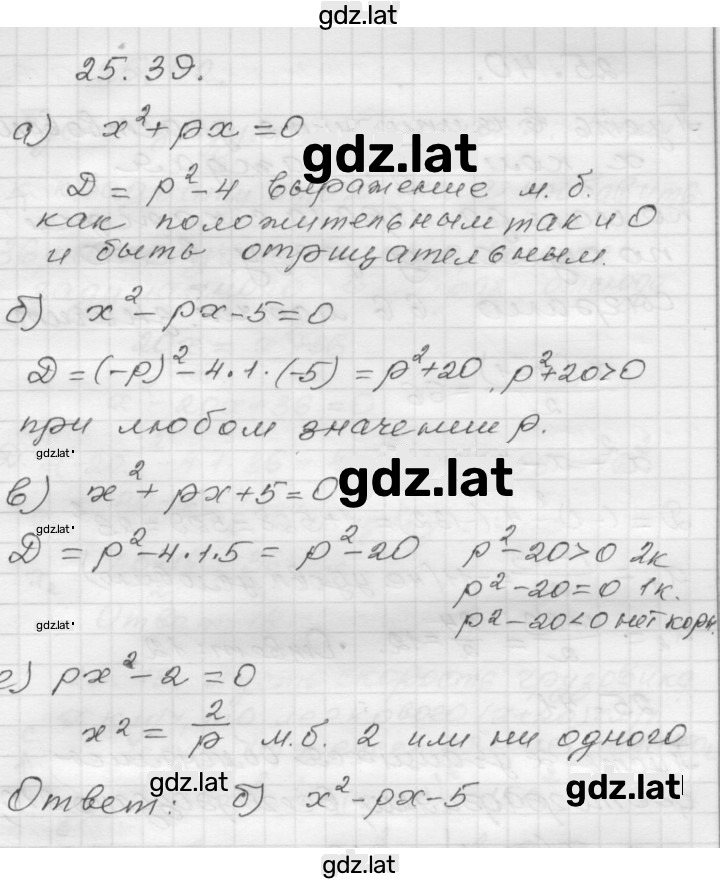 gdz.lat
25.39.
а) x²+px=0
gdz.lat
D = p²-4 выражение м.б.
как положительным так и 0
и быть отрицательным.
б) x²-px-5=0
D=(-p)²-4·1·(-5)=p²+20, p²+20>0
при любом значении p.
gdz.lat
gdz.lat
в) x²+px+5=0
gdz.lat
D = p²-4·1·5 = p²-20 p²-20>0 2к
p²-20=0 1к.
gdz.lat
p²-20<0 нет корн.
г) px²-2=0
x² = 2/p м.б. 2 или ни одного
gdz.lat
gdz.lat
Ответ: б) x²-px-5
gdz.lat